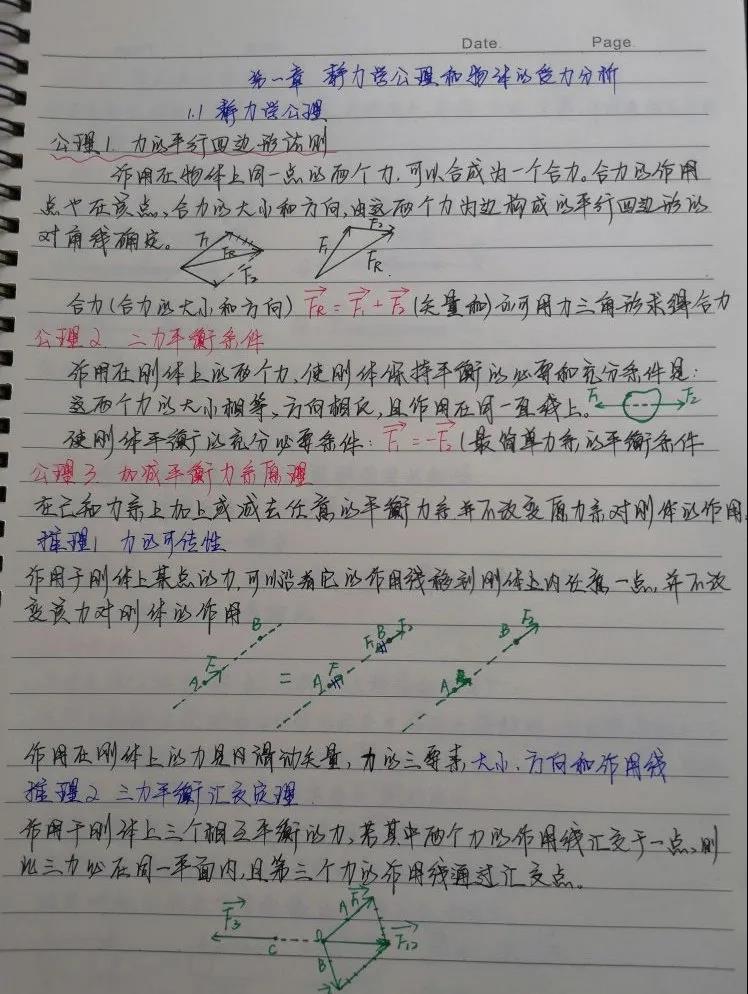 Date. Page.
第一章 静力学公理和物体的受力分析
1.1 静力学公理
公理1 力的平行四边形法则
作用在物体上同一点的两个力,可以合成为一个合力。合力的作用
点也在该点,合力的大小和方向,由这两个力为边构成的平行四边形的
对角线确定。
F₁ F_R F₂ F₁ F₂ F_R
合力(合力的大小和方向) F_R = F₁ + F₂ (矢量和) 亦可用力三角形求得合力
公理2 二力平衡条件
作用在刚体上的两个力,使刚体保持平衡的必要和充分条件是:
这两个力的大小相等,方向相反,且作用在同一直线上。 F₁ F₂
使刚体平衡的充分必要条件: F₁ = -F₂ (最简单力系的平衡条件
公理3 加减平衡力系原理
在已知力系上加上或减去任意的平衡力系并不改变原力系对刚体的作用
推理1 力的可传性
作用于刚体上某点的力,可以沿着它的作用线移到刚体上内任意一点,并不改
变该力对刚体的作用
A F B = A F F₁ B F₂ A B F₂
作用在刚体上的力是用滑动矢量,力的三要素 大小、方向和作用线
推理2 三力平衡汇交定理
作用于刚体上三个相互平衡的力,若其中两个力的作用线汇交于一点,则
此三力必在同一平面内,且第三个力的作用线通过汇交点。
F₃ C A F₁ F₁₂ B